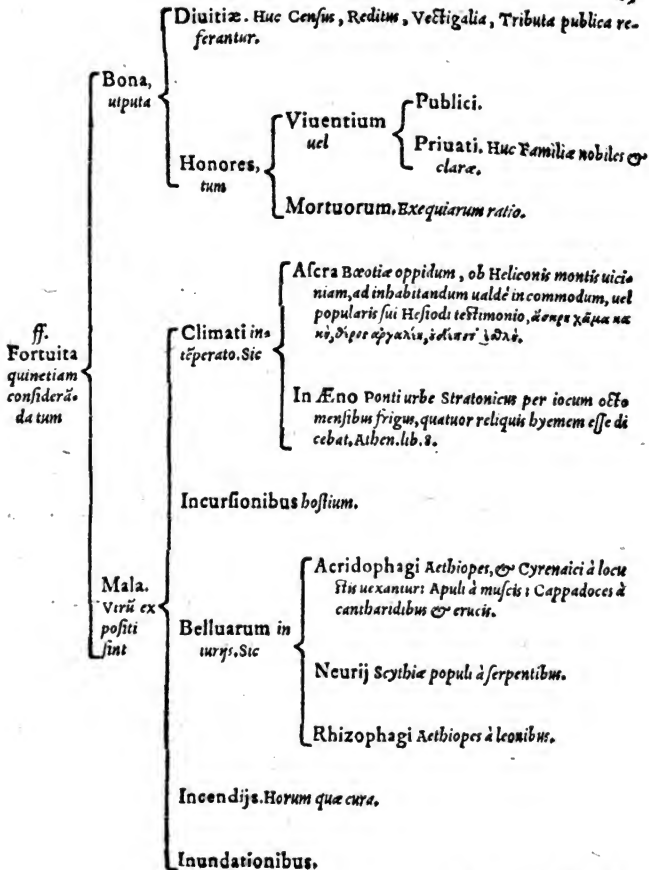 Diuitiæ. Huc Cenſus, Reditus, Vectigalia, Tributa publica re-
ferantur.
Bona,
utputa
Honores,
tum
Viuentium
uel
Publici.
Priuati. Huc Familiæ nobiles &
claræ.
Mortuorum. Exequiarum ratio.
ff.
Fortuita
quinetiam
conſiderã-
da tum
Mala.
Vtrũ ex
poſiti
ſint
Climati in-
tẽperato. Sic
Aſcra Bœotiæ oppidum, ob Heliconis montis uici-
niam, ad inhabitandum ualdè incommodum, uel
popularis ſui Heſiodi teſtimonio,
In Æno Ponti urbe Stratonicus per iocum octo
menſibus frigus, quatuor reliquis hyemem eſſe di
cebat, Athen. lib. 8.
Incurſionibus hoſtium.
Belluarum in
iurijs. Sic
Acridophagi Aethiopes, & Cyrenaici à locu
ſtis uexantur: Apuli à muſcis: Cappadoces à
cantharidibus & erucis.
Neurij Scythiæ populi à ſerpentibus.
Rhizophagi Aethiopes à leonibus.
Incendijs. Horum quæ cura.
Inundationibus.